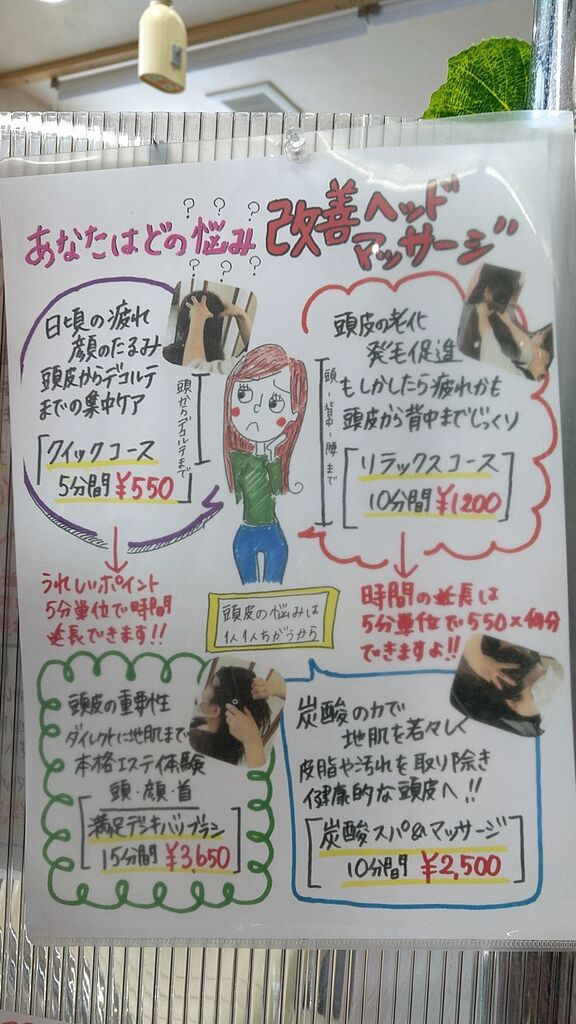 ? ? ?
あなたはどの悩み
? ? ?
改善ヘッド
マッサージ
日頃の疲れ
顔のたるみ
頭皮からデコルテ
までの集中ケア
クイックコース
5分間 ¥550
頭からデコルテまで
頭皮の老化
発毛促進
もしかしたら疲れかも
頭皮から背中までじっくり
リラックスコース
10分間 ¥1200
頭・背中・腰まで
うれしいポイント
5分単位で時間
延長できます!!
頭皮の悩みは
1人1人ちがうから
時間の延長は
5分単位で550×何分
できますよ!!
頭皮の重要性
ダイレクトに地肌まで
本格エステ体験
頭・顔・首
満足デンキバリプラン
15分間 ¥3,650
炭酸の力で
地肌を若々しく
皮脂や汚れを取り除き
健康的な頭皮へ!!
炭酸スパ&マッサージ
10分間 ¥2,500